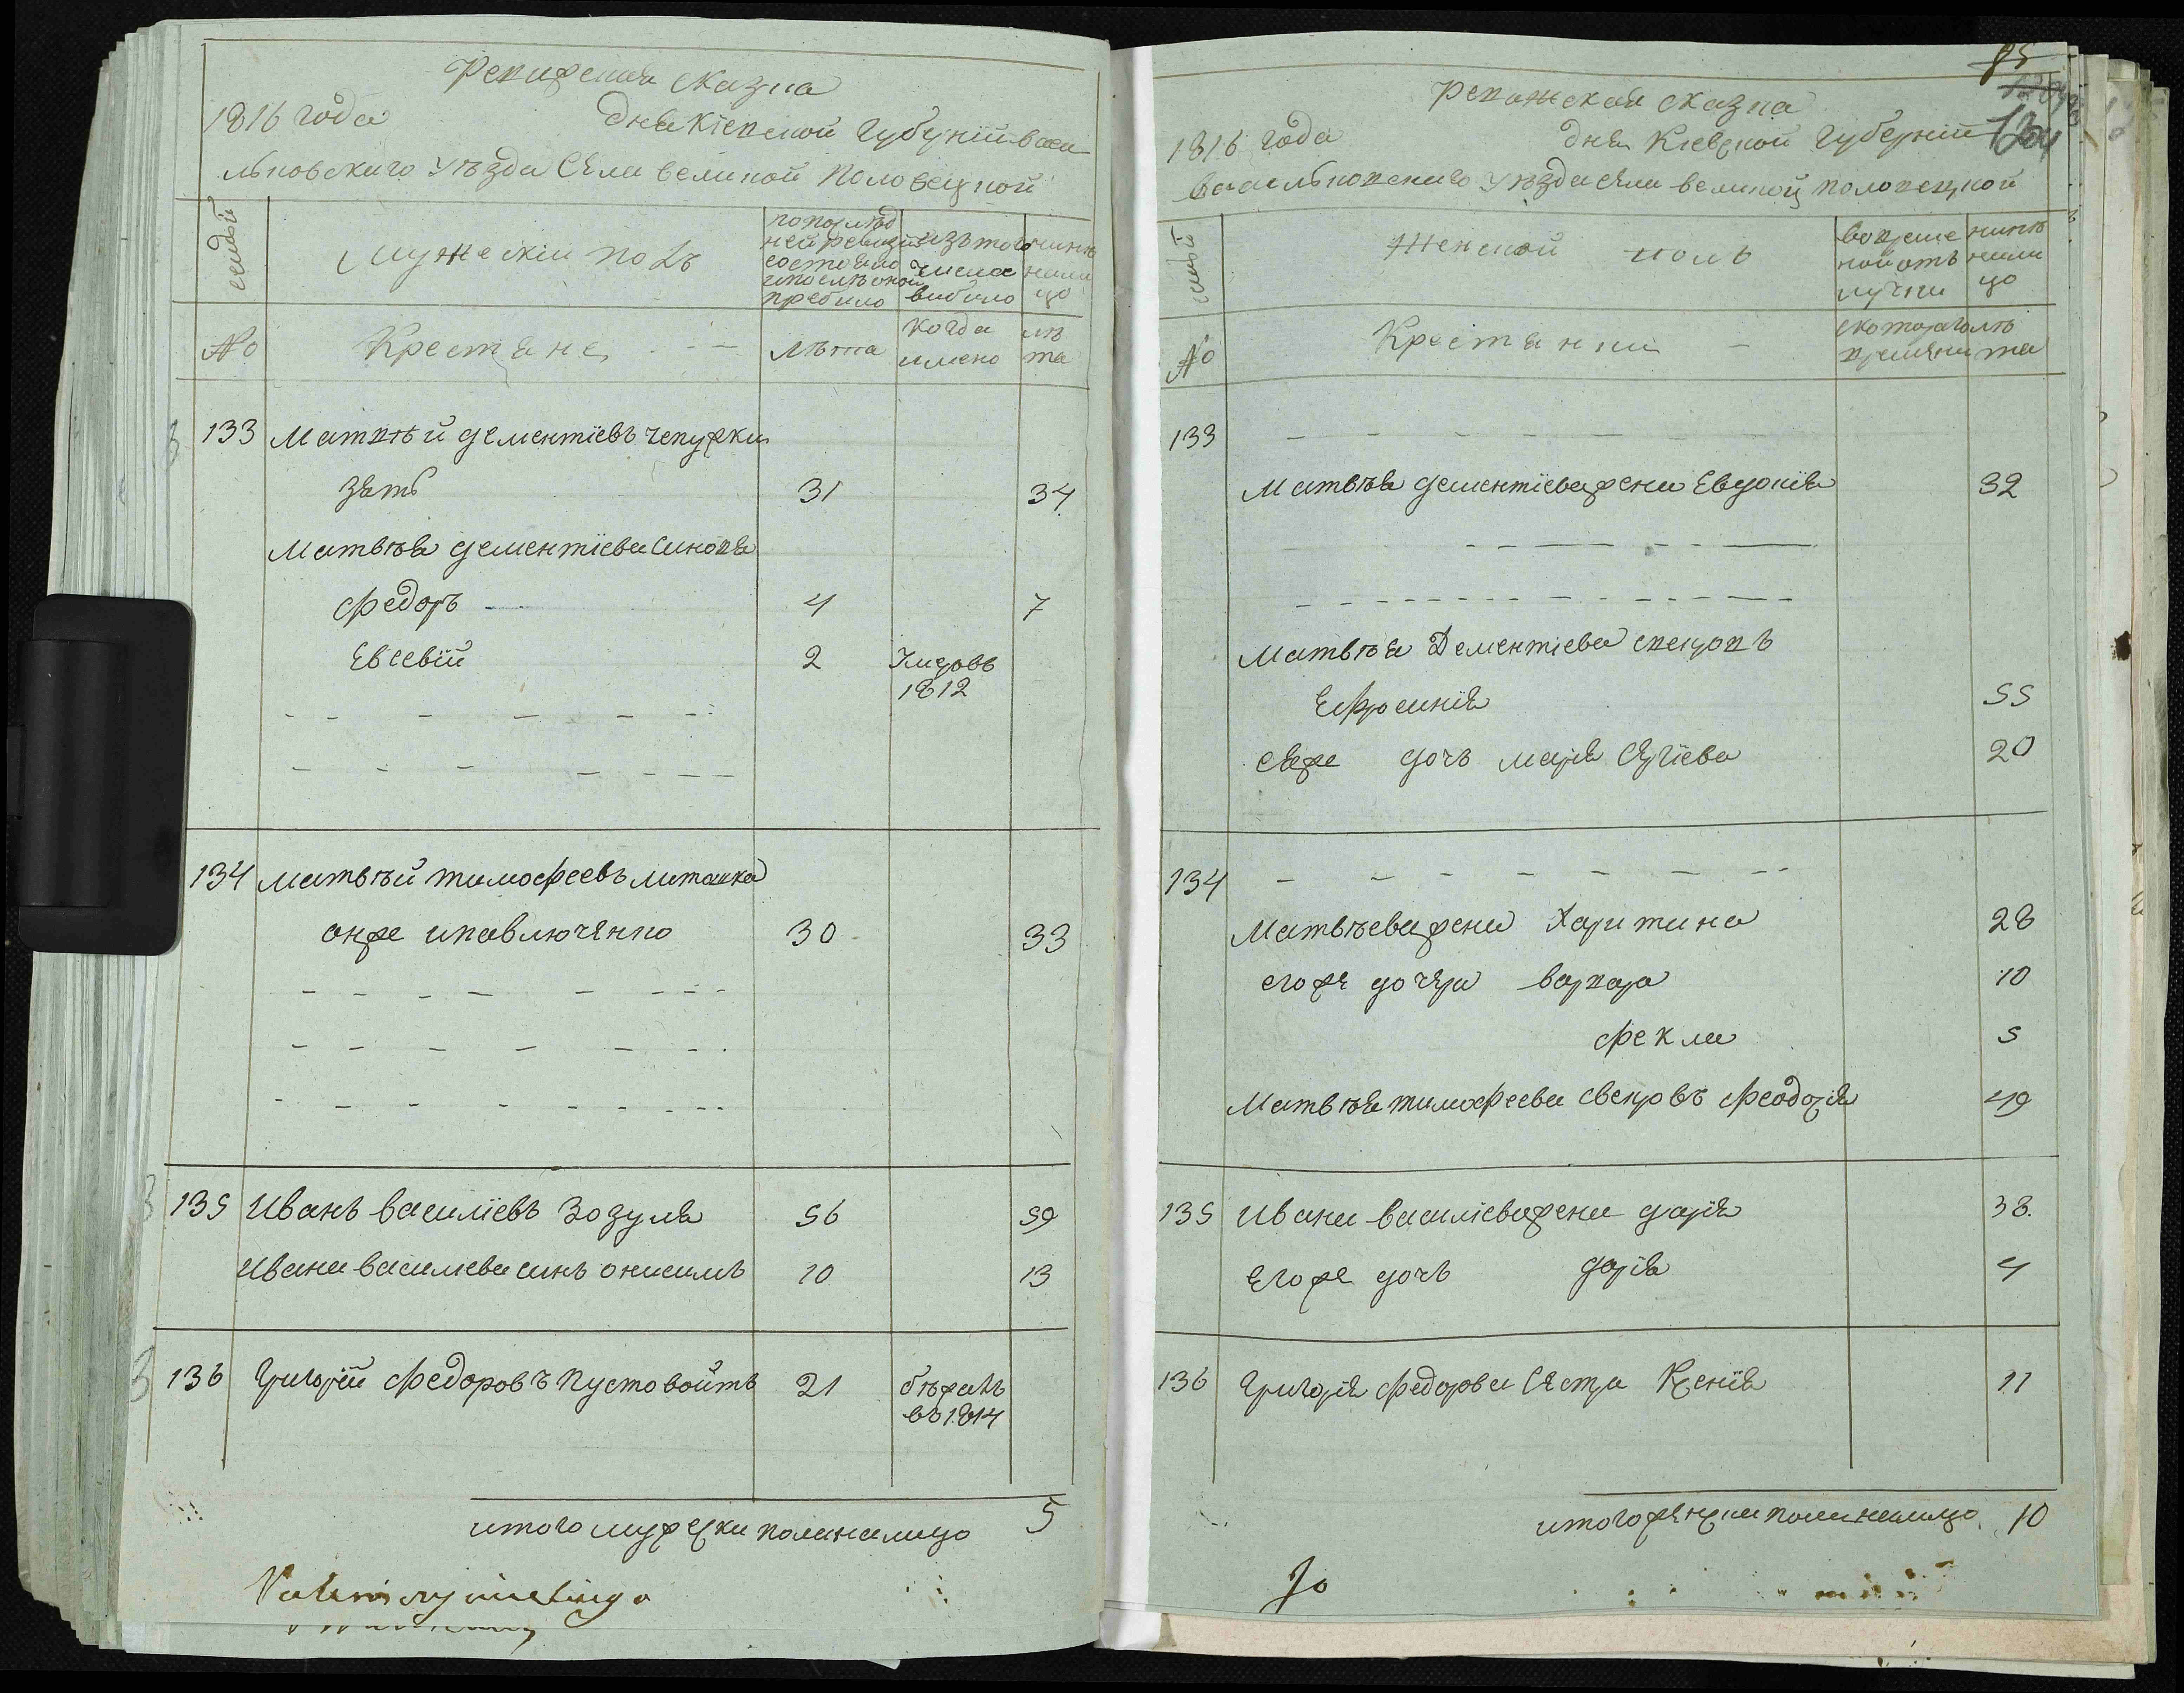 Ревизская сказка
1816 года дня Кіевской Губерній васи
льковского Уѣзда Села великой Половецкой
семьи
Мужескій полъ
по послѣд
ней ревизіи
состояло
и после оной
пребило
изъ того
числа
вибило
нинѣ
нали
цо
№
Крестяне
лѣта
когда
имено
лѣ
та
133 Матвѣй дементіевъ чепурки
зять 31 34
Матвѣя дементіева синовя
федоръ 4 7
Евсевій 2 Умеръ въ
1812
134 матвѣй тимофеевъ литошка
онже ипавлюченко 30 33
135 Иванъ василіевъ Зозуля 56 59
Ивана василіева синъ онисимъ 10 13
136 Григорій федоровъ Пустовойтъ 21 бѣжалъ
въ 1814
итого мужеска пола налицо 5
85
124
Ревизская сказка
1816 года дня Кіевской Губерній
васильковского Уѣзда села великой половецкой
семьи
Женской полъ
во време
ной отъ
лучки
нинѣ
нали
цо
№
Крестянки
скоторого
времяни
лѣ
та
133
Матвѣя дементіева жена Евдокія 32
Матвѣя Дементіева свекровъ
Ефросинія 55
еяже дочъ марія Сергіева 20
134
Матвѣева жена Харитина 28
егоже дочери варвара 10
фекла 5
Матвѣя тимофеева свекровъ феодосія 49
135 Ивана василіева жена дарія 38.
Егоже дочъ дарія 4
136 Григорія федорова Сестра Ксенія 11
итого женска пола налицо 10